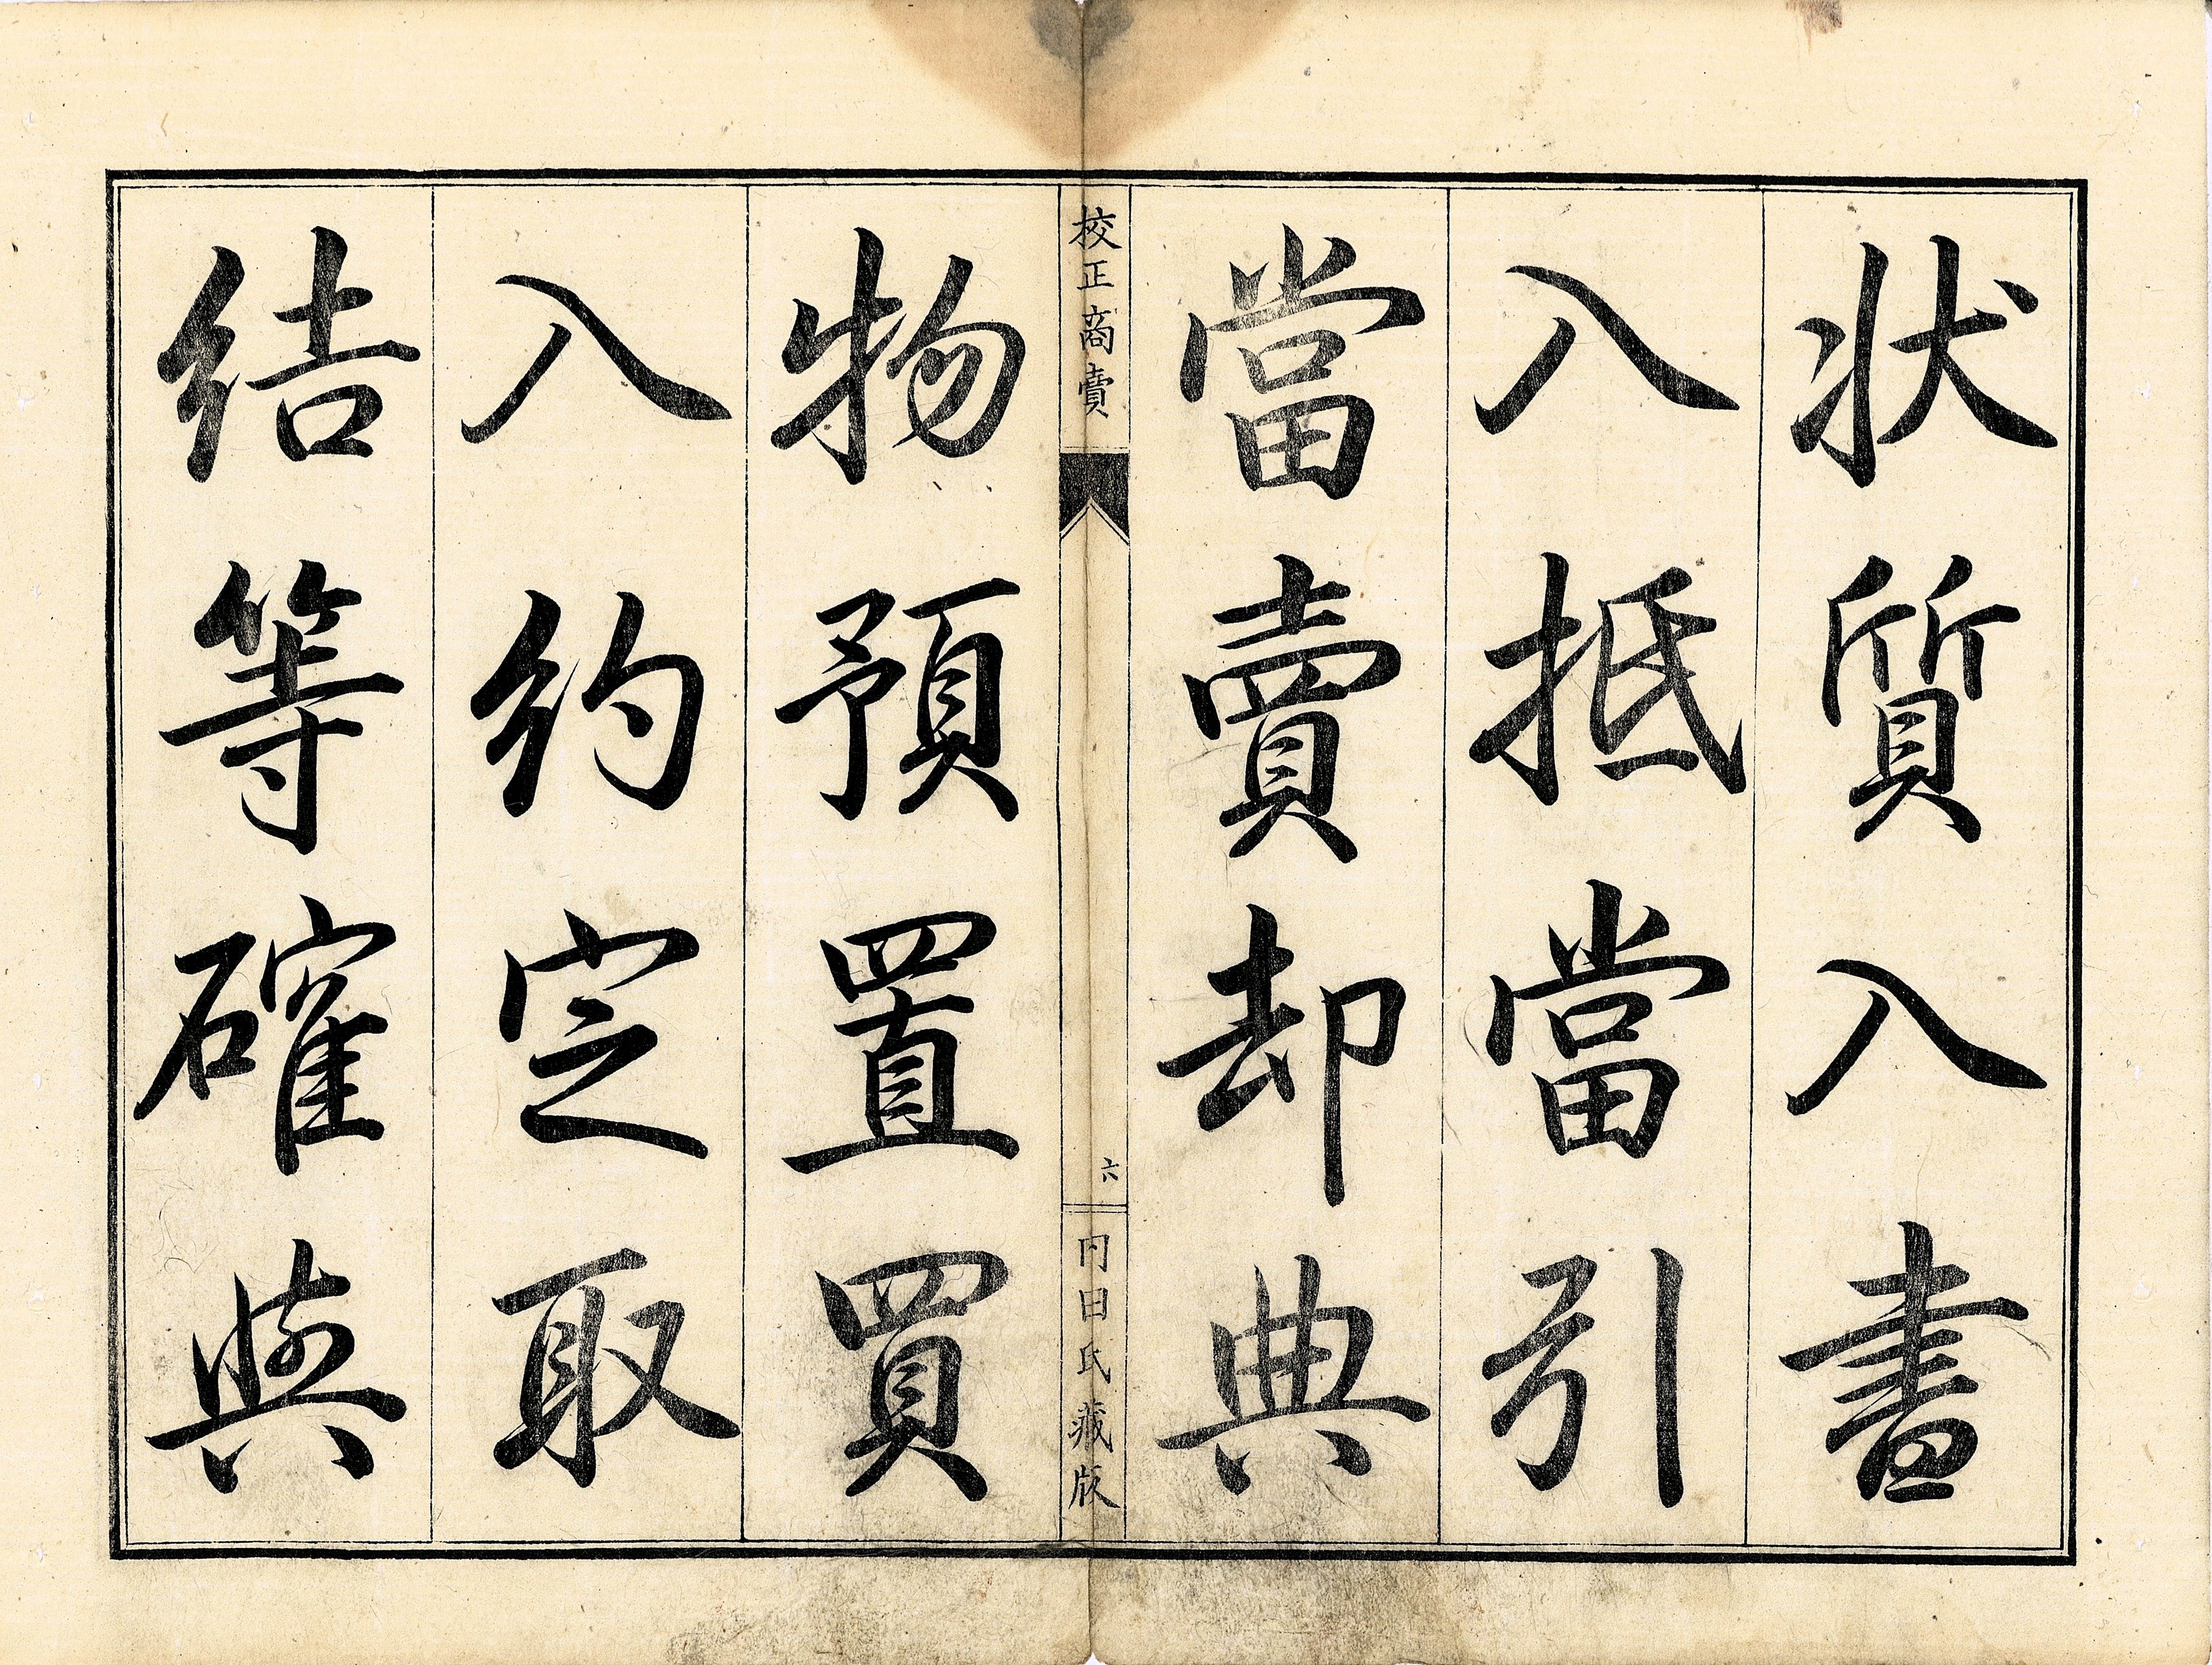 状質入書
入抵當引
當賣却典
校正商賣
六
内田氏藏版
物預置買
入約定取
結等確與